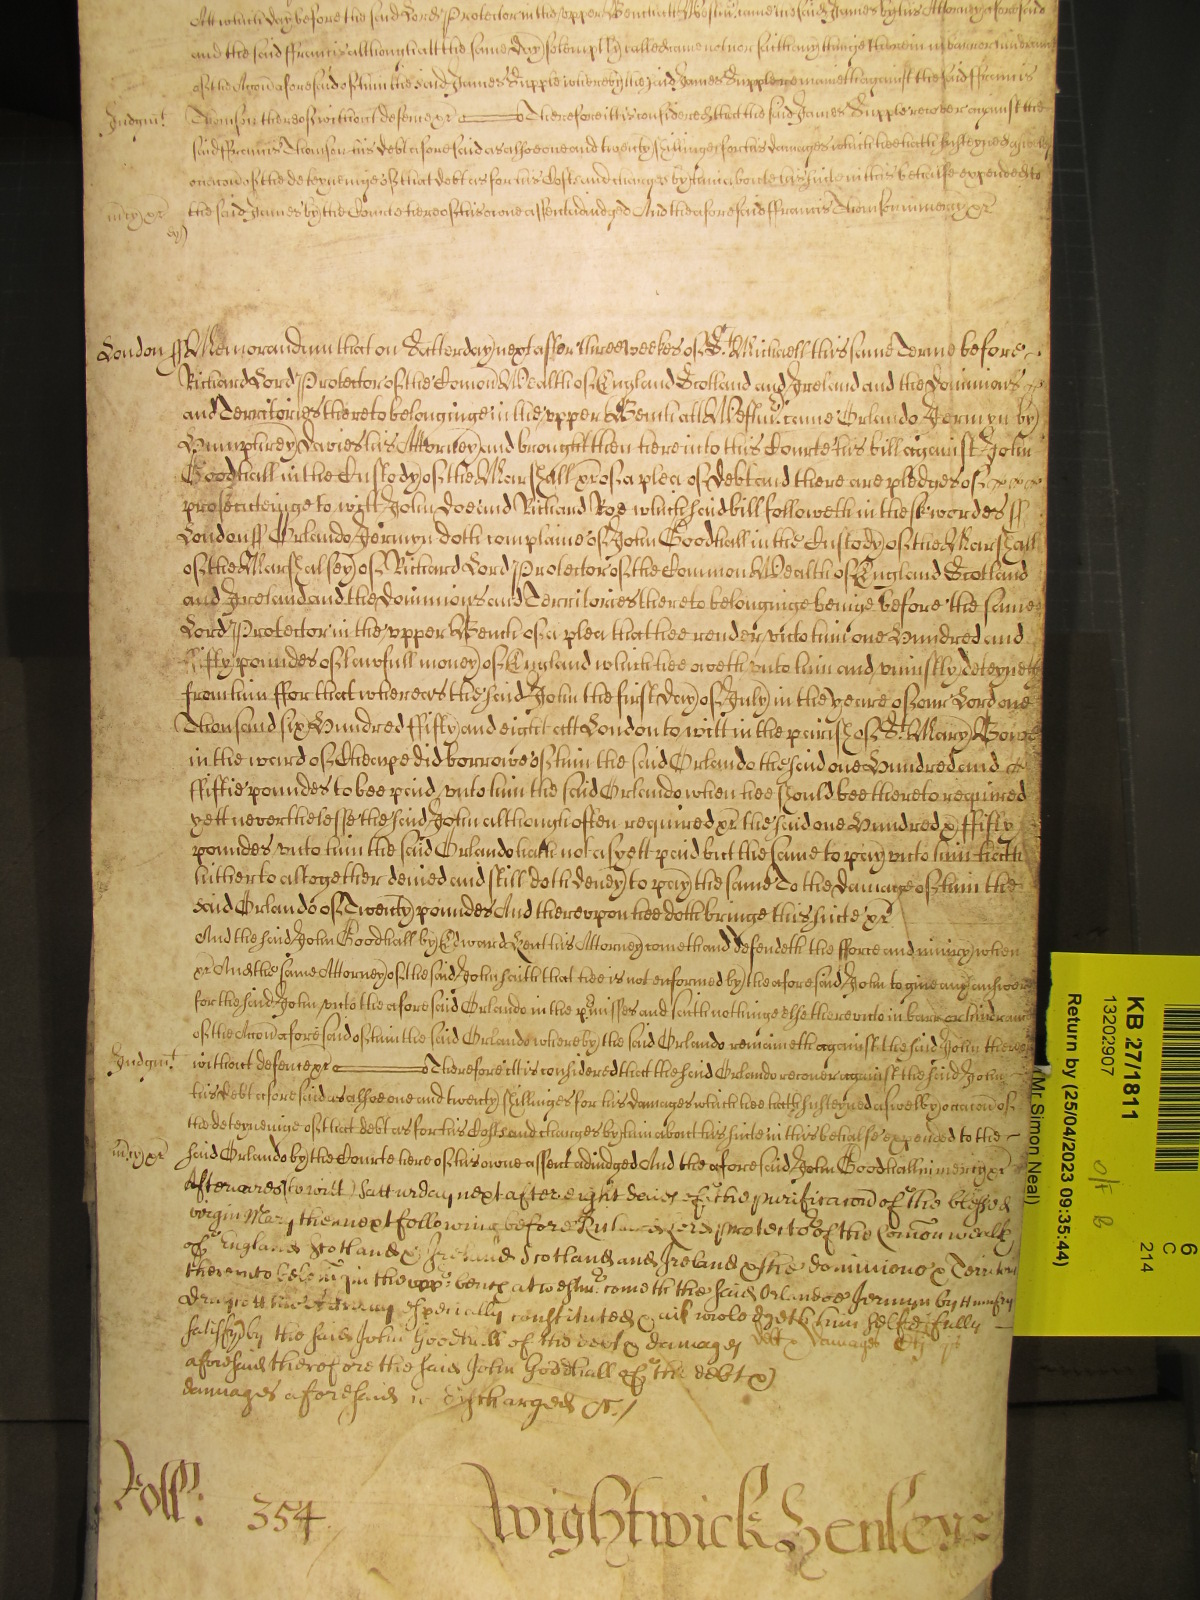 Att which day before the said Lord Protector in the upper Bench att Westmr. came the said James by his Attorney aforesaid
and the said ffrancis although att the same day solemply called came not nor saith any thinge therein in barr or hindrance
of the Accon aforesaid of him the said James Supple whereby the said James Supple remaineth against the said ffrancis
Judgmt. Thomson thereof without defence &c Therefore itt is considered that the said James Supple recover against the
said ffrancis Thomson his debt aforesaid as alsoe one and twenty shillinges for his damages which hee hath susteyned aswell by
occacon of the deteyneinge of that debt as for his Costs and charges by him aboute his suite in this behalfe expended to
mercy &c the said James by the Courte here of his owne assent adiudged And the aforesaid ffrancis Thomson in mercy &c
London ss Memorandum that on Satterday next after three weekes of St. Michaell this same Terme before
Richard Lord Protector of the Comon Wealth of England Scotland and Ireland and the Dominions
and Territories thereto belonginge in the upper Bench att Westmr. came Orlando Jermyn by
Humphrey Davies his Attorney and brought then here into this Courte his bill against John
Goodhall in the Custody of the Marshall &c of a plea of debt and there are pledges of
prosecuteinge to witt John Doe and Richard Roe which said bill followeth in these wordes ss
London ss Orlando Jermyn doth complaine of John Goodhall in the Custody of the Marshall
of the Marshalsey of Richard Lord Protector of the Common Wealth of England Scotland
and Ireland and the Dominions and Territories thereto belonginge beinge before the same
Lord Protector in the upper Bench of a plea that hee render unto him one Hundred and
ffifty poundes of lawfull money of England which hee oweth unto him and uniustly deteyneth
from him ffor that whereas the said John the first day of July in the yeare of our Lord one
Thousand six Hundred ffifty and eight att London to witt in the parish of St. Mary Bowe
in the ward of Cheape did borrowe of him the said Orlando the said one Hundred and
ffiftie poundes to bee paid unto him the said Orlando when hee should bee thereto required
yett neverthelesse the said John although often required &c the said one Hundred & ffifty
poundes unto him the said Orlando hath not as yett paid but the same to pay unto him hath
hitherto altogether denied and still doth deney to pay the same To the Damage of him the
said Orlando of Twenty poundes And thereupon hee doth bringe this suite &c
And the said John Goodhall by Edward Bent his Attorney cometh and defendeth the fforce and iniury when
&c And the same Attorney of the said John saith that hee is not enformed by the aforesaid John to give any answere
for the said John unto the aforesaid Orlando in the premisses and saith nothinge else thereunto in barr or hindrance
of the Accon aforesaid of him the said Orlando whereby the said Orlando remaineth against the said John thereof
Judgmt. without defence &c Therefore itt is considered that the said Orlando recover against the said John
his debt aforesaid as alsoe one and twenty shillinges for his damages which hee hath susteyned aswell by occacon of
the deteyneinge of that debt as for his Costs and charges by him about his suite in this behalfe expended to the
mercy &c said Orlando by the Courte here of his owne assent adiudged And the aforesaid John Goodhall in mercy &c
Afterwards (to witt) Satturday next after eight daies of the purificacon of the blessed
virgin Mary then next following before Richard Lord protector of the Comon wealth
of England Scotland & Ireland Scotland and Ireland & the dominions & Territories
thereunto belonging in the upper bench at westmr. cometh the said Orlando Jermyn by Humfry
his Attorney especially constituted & acknowledgeth him selfe fully
satisfyed by the said John Goodhall of the debt & damages
aforesaid therefore the said John Goodhall of the debt &
damages aforesaid is discharged &c /
Roll: 354 Wightwick Henley
KB 27/1811
13202907
Return by (25/04/2023 09:35:44)
(Mr Simon Neal)
O/F B
6
C
214